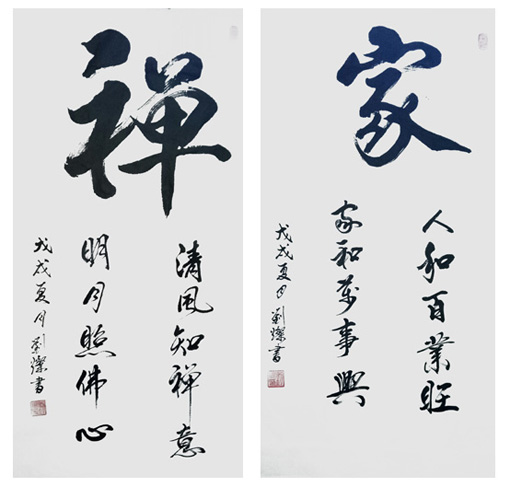 禅
清风知禅意
明月照佛心
戊戌夏月刘灿書
家
人和百業旺
家和万事興
戊戌夏月劉燦書